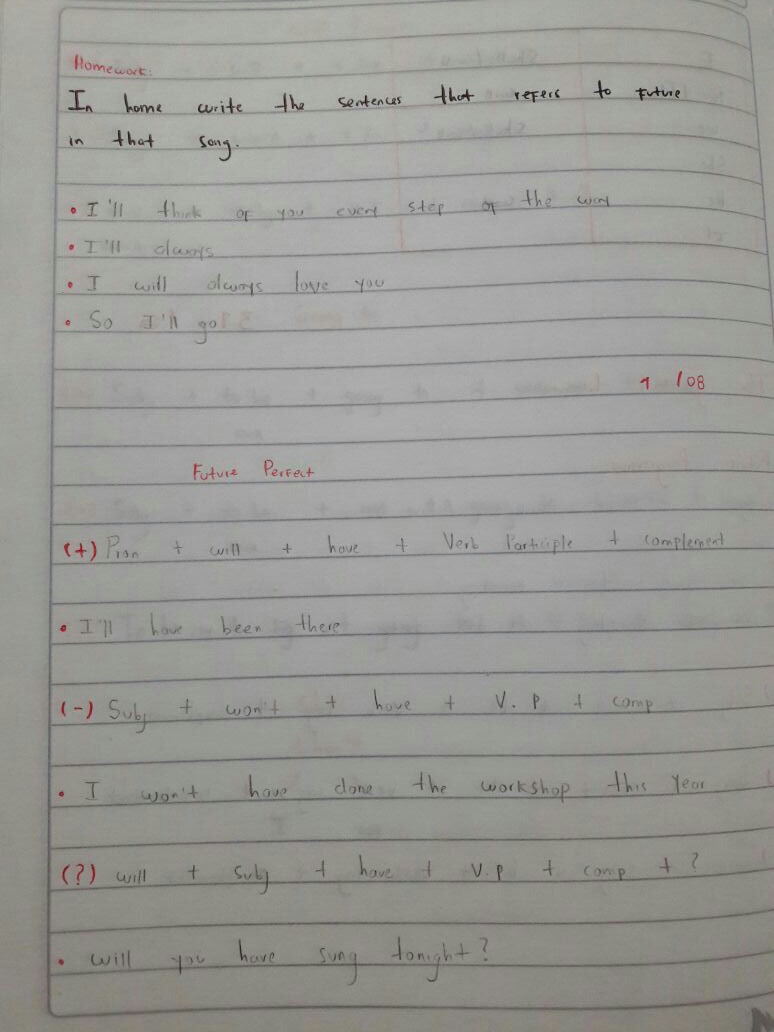 Homework:
In home write the sentences that refers to future
in that song.
• I'll think of you every step of the way
• I'll always
• I will always love you
• So I'll go
1 /08
Future Perfect
(+) Pron + will + have + Verb Participle + complement
• I'll have been there
(-) Subj + won't + have + V.P + comp
• I won't have done the workshop this year
(?) will + Subj + have + V.P + comp + ?
• will you have sung tonight?